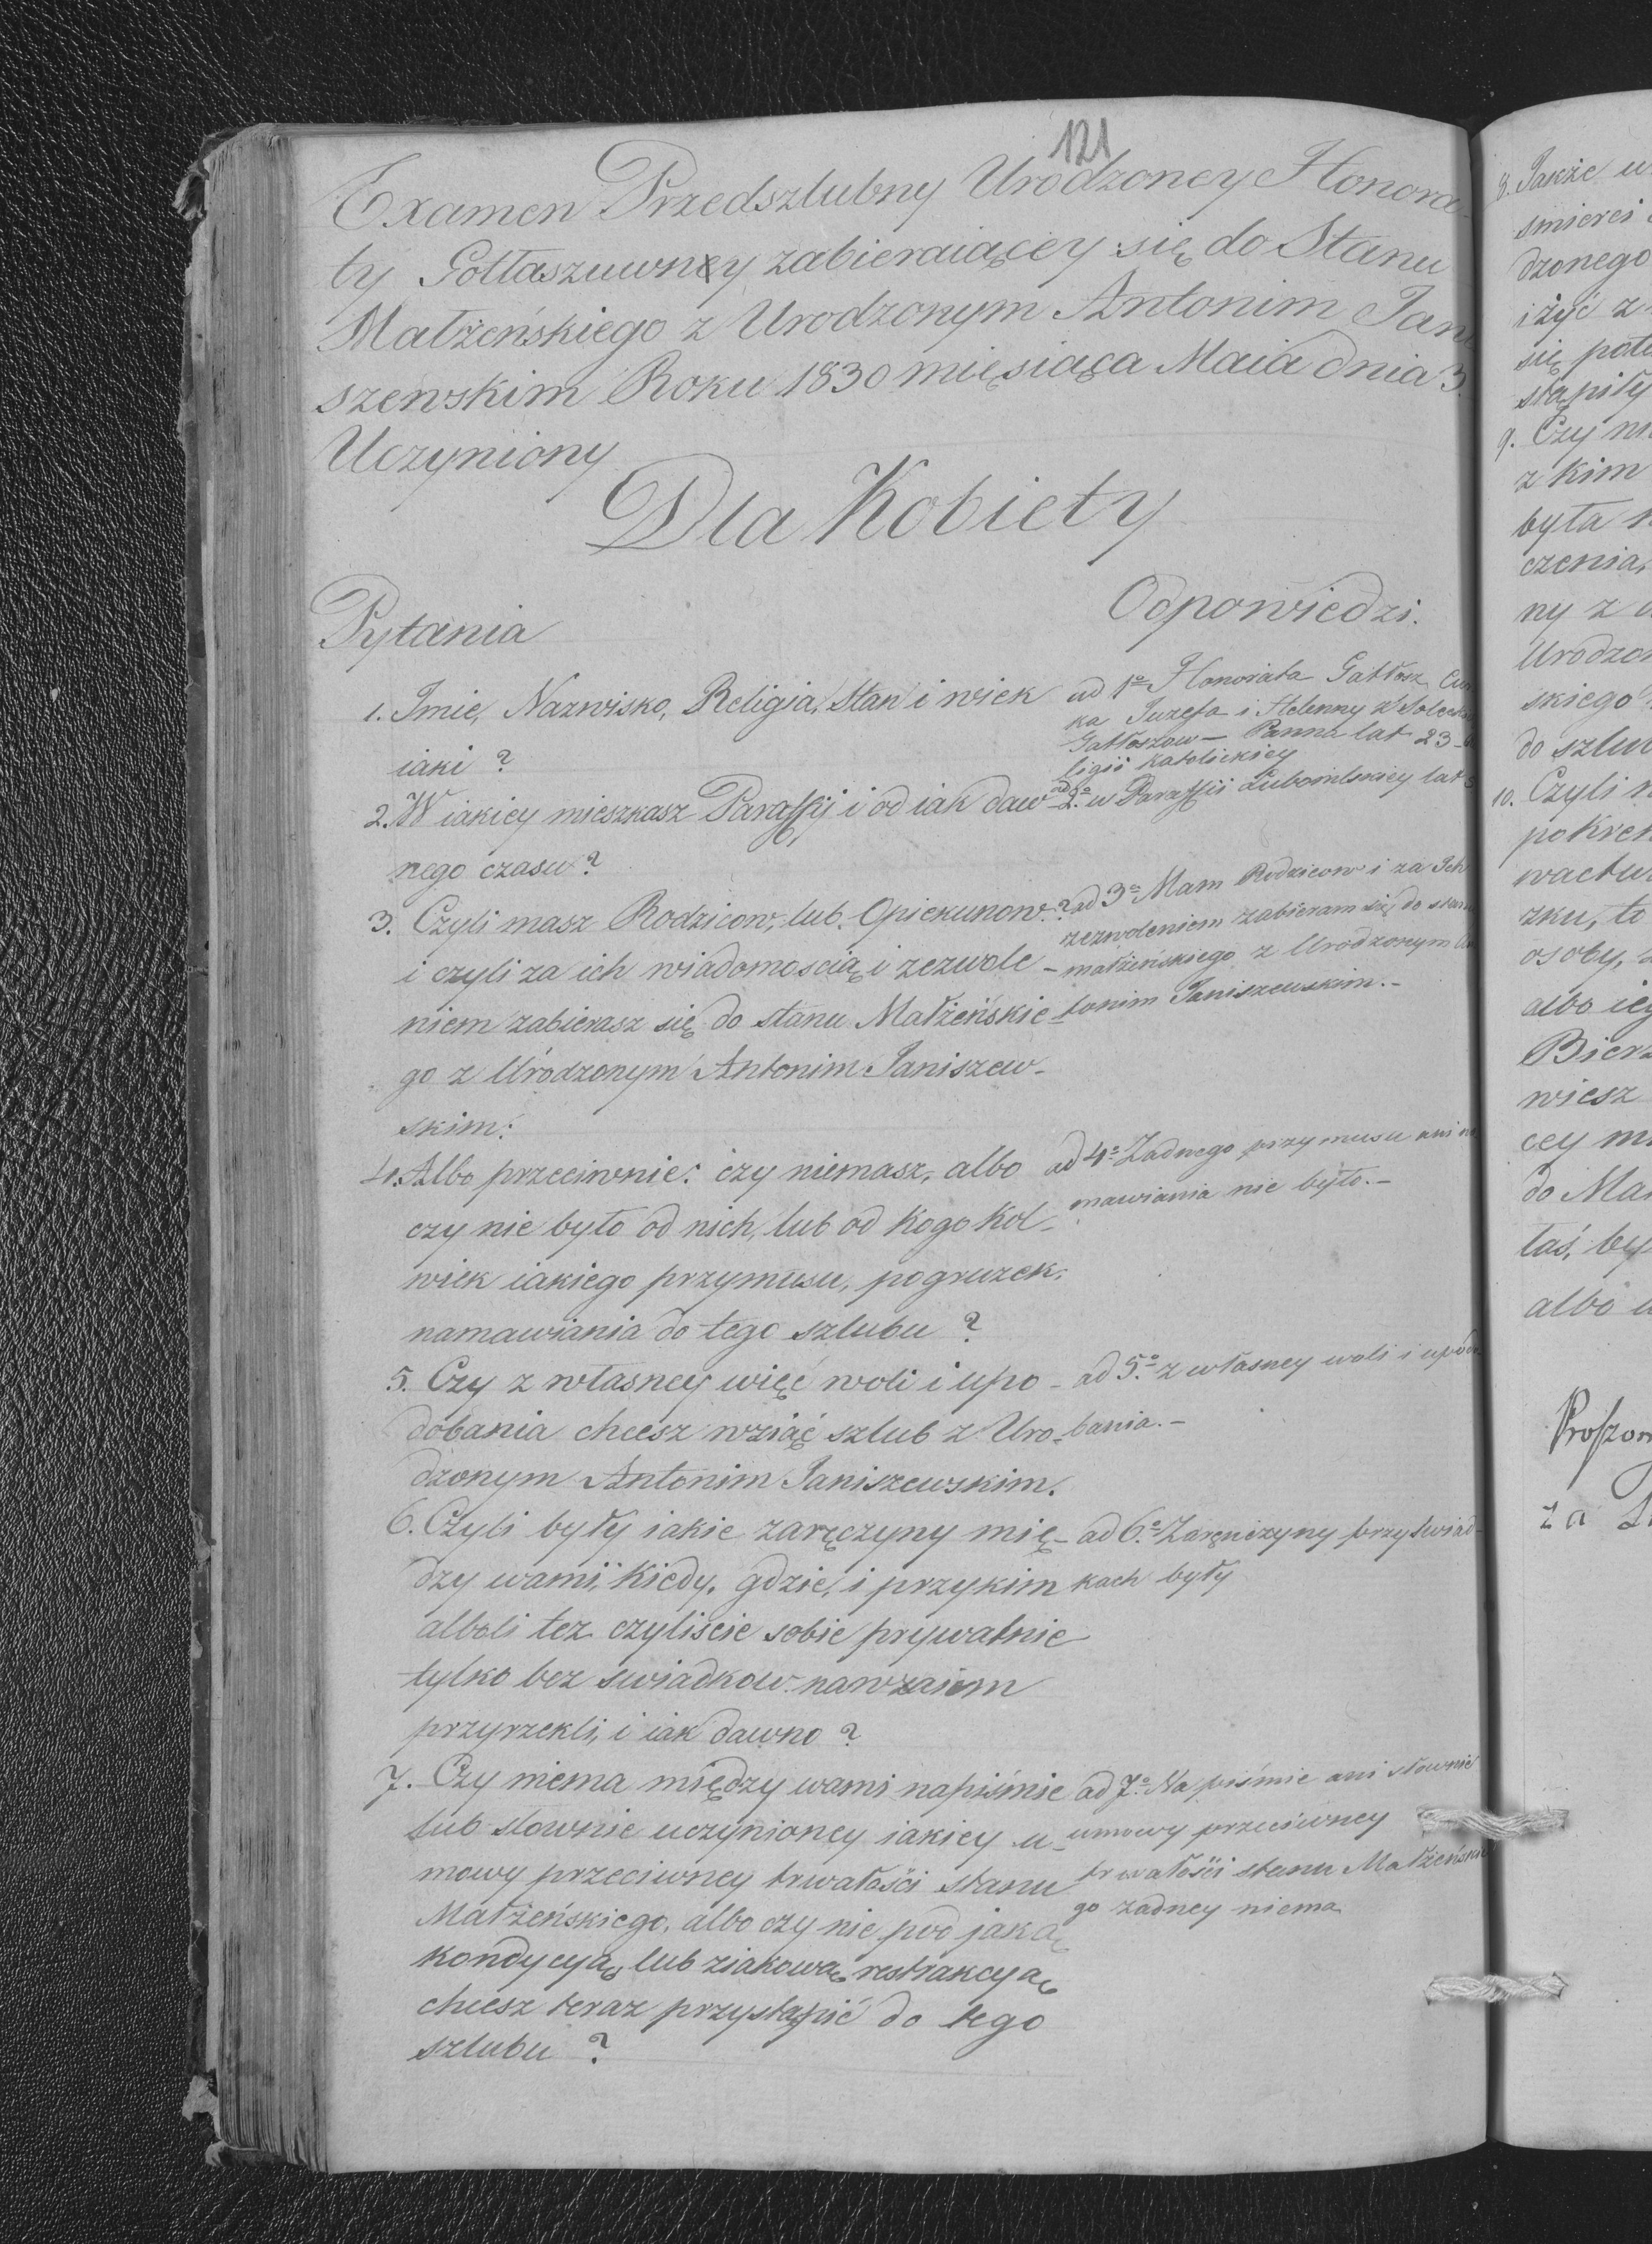 121
Examen Przedszlubny Urodzoney Honora-
ty Gołłaszuwney zabieraiącey się do Stanu
Małżeńskiego z Urodzonym Antonim Jani
szewskim Roku 1830 miesiąca Maia dnia 3.
Uczyniony
Dla Kobiety
Pytania
1. Jmie, Nazwisko, Religia, Stan i wiek
iaki ?
2. W iakiey mieszkasz Paraffij i od iak daw-
nego czasu ?
3. Czyli masz Rodzicow, lub Opiekunow ?
i czyli za ich wiadomoscią i zezwole-
niem zabierasz się do stanu Małżeńskie-
go z Urodzonym Antonim Janiszew-
skim:
4. Albo przeciwnie: czy niemasz, albo
czy nie było od nich, lub od kogo kol-
wiek iakiego przymusu, pogruzek,
namawiania do tego szlubu ?
5. Czy z własney więc woli i upo-
dobania chcesz wziąć szlub z Uro-
dzonym Antonim Janiszewskim.
6. Czyli były iakie zaręczyny mię-
dzy wami, kiedy, gdzie, i przy kim
alboli tez czyliście sobie prywatnie
tylko bez swiadkow nawzaiem
przyrzekli, i iak dawno ?
7. Czy niema między wami napiśmie
lub słownie uczynioney iakiey u-
mowy przeciwney trwałości stanu
Małżeńskiego, albo czy nie pod jaką
kondycyą, lub ziakową restrakcyą
chcesz teraz przystąpić do tego
szlubu ?
Odpowiedzi.
ad 1º Honorata Gałłosz Cur
ka Juzefa i Helenny z
Gałłoszow – Panna lat 23
ligii katolickiey
ad 2º w Paraffii Lubomlskiey lat
ad 3º Mam Rodzicow i za Ich
zezwoleniem zabieram się do stanu
małżeńskiego z Urodzonym An
tonim Janiszewskim.-
ad 4º Zadnego przymusu ani na
mawiania nie było.-
ad 5º z własney woli i upodo
bania.-
ad 6º Zaręnczyny przy swiad-
kach były
ad 7º Na piśmie ani słownie
umowy przeciwney
trwałości stanu Małżeńskie
go żadney niema
8. Jakże
smierci
dzonego
i żyć z
się
stąpiły
9. Czy
z kim
była
czenia,
ny z
Urodzo
skiego
do szlu
10. Czyli
pokrew
wactw
zku, to
osoby,
albo iey
Bierz
wiesz
cey
do Mał
łaś, by
albo
za